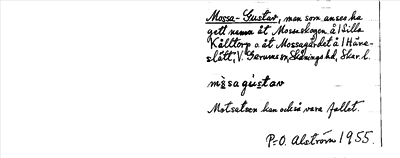 Mossa-Gustav, man som anses ha
gett namn åt Mossaskogen å l Silla
Kålltorp o. åt Mossagärdet å l Häre-
slätt, V. Gerums sn, Skånings hd, Skar. l.
mòsagùstav
Motsatsen kan också vara fallet.
P-O. Alström 1955.